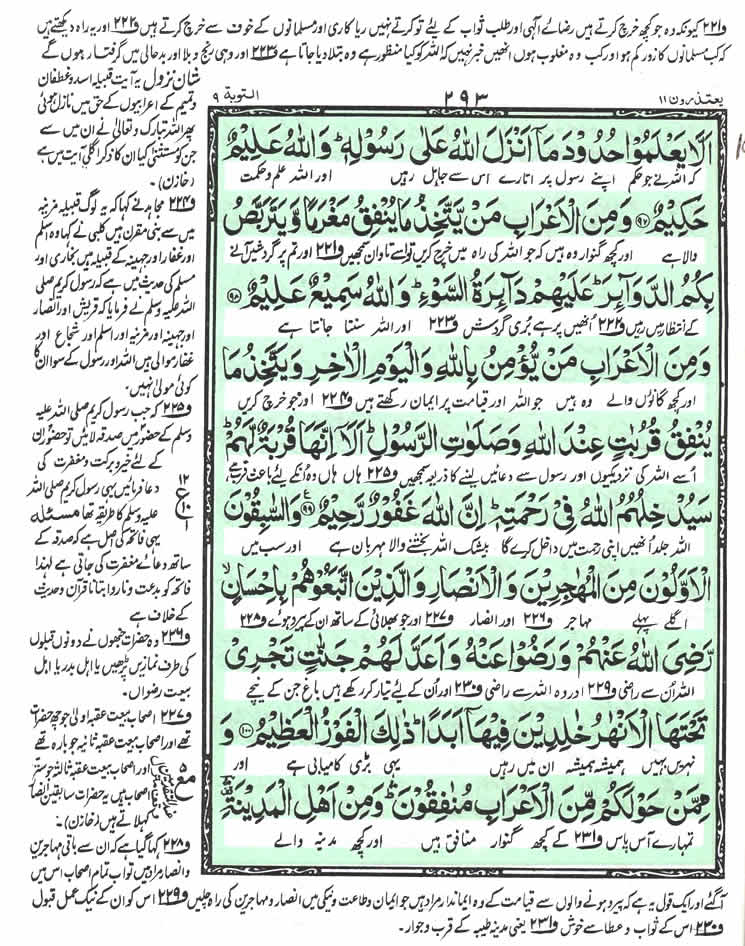 و۲۲۱ کیونکہ وہ جو کچھ خرچ کرتے ہیں رضائے الٰہی اور طلب ثواب کے لیے تو کرتے نہیں ریا کاری اور مسلمانوں کے خوف سے خرچ کرتے ہیں و۲۲۲ اور یہ راہ دیکھتے ہیں
کہ کب مسلمانوں کا زور کم ہو اور کب وہ مغلوب ہوں انھیں خبر نہیں کہ اللہ کو کیا منظور ہے وہ بتلا دیا جاتا ہے و۲۲۳ اور وہی رنج و بلا اور بدحالی میں گرفتار ہوں گے
یعتذرون ۱۱
۲۹۳
التوبة ۹
اَلَّا یَعْلَمُوْا حُدُوْدَ مَاۤ اَنْزَلَ اللّٰهُ عَلٰی رَسُوْلِهٖ ؕ وَاللّٰهُ عَلِیْمٌ
کہ اللہ نے جو حکم اپنے رسول پر اتارے اس سے جاہل رہیں اور اللہ علم و حکمت
حَكِیْمٌ ﴿۹۷﴾ وَمِنَ الْاَعْرَابِ مَنْ یَّتَّخِذُ مَا یُنْفِقُ مَغْرَمًا وَّیَتَرَبَّصُ
والا ہے اور کچھ گنوار وہ ہیں کہ جو اللہ کی راہ میں خرچ کریں تو اسے تاوان سمجھیں و۲۲۱ اور تم پر گردشیں آنے
بِكُمُ الدَّوَآئِرَ ؕ عَلَیْهِمْ دَآئِرَةُ السَّوْءِ ؕ وَاللّٰهُ سَمِیْعٌ عَلِیْمٌ ﴿۹۸﴾
کے انتظار میں رہیں و۲۲۲ انھیں پر ہے بری گردش و۲۲۳ اور اللہ سنتا جانتا ہے
وَمِنَ الْاَعْرَابِ مَنْ یُّؤْمِنُ بِاللّٰهِ وَالْیَوْمِ الْاٰخِرِ وَیَتَّخِذُ مَا
اور کچھ گاؤں والے وہ ہیں جو اللہ اور قیامت پر ایمان رکھتے ہیں و۲۲۴ اور جو خرچ کریں
یُنْفِقُ قُرُبٰتٍ عِنْدَ اللّٰهِ وَصَلَوٰتِ الرَّسُوْلِ ؕ اَلَاۤ اِنَّهَا قُرْبَةٌ لَّهُمْ ؕ
اسے اللہ کی نزدیکیوں اور رسول سے دعائیں لینے کا ذریعہ سمجھیں و۲۲۵ ہاں ہاں وہ ان کے لیے باعث قرب ہے
سَیُدْخِلُهُمُ اللّٰهُ فِیْ رَحْمَتِهٖ ؕ اِنَّ اللّٰهَ غَفُوْرٌ رَّحِیْمٌ ﴿۹۹﴾ وَالسّٰبِقُوْنَ
اللہ جلد انھیں اپنی رحمت میں داخل کرے گا بیشک اللہ بخشنے والا مہربان ہے اور سب میں
الْاَوَّلُوْنَ مِنَ الْمُهٰجِرِیْنَ وَالْاَنْصَارِ وَالَّذِیْنَ اتَّبَعُوْهُمْ بِاِحْسَانٍ ۙ
اگلے پہلے مہاجر و۲۲۶ اور انصار و۲۲۷ اور جو بھلائی کے ساتھ ان کے پیرو ہوئے و۲۲۸
رَّضِیَ اللّٰهُ عَنْهُمْ وَرَضُوْا عَنْهُ وَاَعَدَّ لَهُمْ جَنّٰتٍ تَجْرِیْ
اللہ ان سے راضی و۲۲۹ اور وہ اللہ سے راضی و۲۳۰ اور ان کے لیے تیار کر رکھے ہیں باغ جن کے نیچے
تَحْتَهَا الْاَنْهٰرُ خٰلِدِیْنَ فِیْهَاۤ اَبَدًا ؕ ذٰلِكَ الْفَوْزُ الْعَظِیْمُ ﴿۱۰۰﴾ وَ
نہریں بہیں ہمیشہ ہمیشہ ان میں رہیں یہی بڑی کامیابی ہے اور
مِمَّنْ حَوْلَكُمْ مِّنَ الْاَعْرَابِ مُنٰفِقُوْنَ ؕ وَمِنْ اَهْلِ الْمَدِیْنَةِ
تمہارے آس پاس و۲۳۱ کے کچھ گنوار منافق ہیں اور کچھ مدینہ والے
شان نزول یہ آیت قبیلہ اسد و غطفان
و تمیم کے اعرابیوں کے حق میں نازل ہوئی
پھر اللہ تبارک و تعالیٰ نے ان میں سے
جن کو مستثنیٰ کیا ان کا ذکر اگلی آیت میں ہے
(خازن)۔
و۲۲۴ مجاہد نے کہا کہ یہ لوگ قبیلہ مزینہ
میں سے بنی مقرن ہیں کلبی نے کہا وہ اسلم
اور غفار اور جہینہ کے قبیلہ ہیں بخاری اور
مسلم کی حدیث میں ہے کہ رسول کریم صلی
اللہ علیہ وسلم نے فرمایا کہ قریش اور انصار
اور جہینہ اور مزینہ اور اسلم اور شجاع اور
غفار موالی ہیں اللہ اور رسول کے سوا ان کا
کوئی مولیٰ نہیں۔
و۲۲۵ کہ جب رسول کریم صلی اللہ علیہ
وسلم کے حضور میں صدقہ لائیں تو حضور ان
کے لئے خیر و برکت و مغفرت کی
دعا فرمائیں یہی رسول کریم صلی اللہ
علیہ وسلم کا طریقہ تھا مسئلہ
یہی فاتحہ کی اصل ہے کہ صدقہ کے
ساتھ دعائے مغفرت کی جاتی ہے لہٰذا
فاتحہ کو بدعت و ناروا بتانا قرآن و حدیث
کے خلاف ہے
و۲۲۶ وہ حضرات جنھوں نے دونوں قبلوں
کی طرف نمازیں پڑھیں یا اہل بدر یا اہل
بیعت رضواں۔
و۲۲۷ اصحاب بیعت عقبہ اولیٰ جو چھ حضرات
تھے اور اصحاب بیعت عقبہ ثانیہ جو بارہ تھے
اور اصحاب بیعت عقبہ ثالثہ جو ستر
اصحاب ہیں یہ حضرات سابقین انصار
کہلاتے ہیں (خازن)۔
و۲۲۸ کہا گیا ہے کہ ان سے باقی مہاجرین
و انصار مراد ہیں تو اب تمام اصحاب اس میں
۱۲
ع
۱۰
۵
مع
آگئے اور ایک قول یہ ہے کہ پیرو ہونے والوں سے قیامت کے وہ ایماندار مراد ہیں جو ایمان و طاعت و نیکی میں انصار و مہاجرین کی راہ چلیں و۲۲۹ اس کو ان کے نیک عمل قبول
و۲۳۰ اس کے ثواب و عطا سے خوش و۲۳۱ یعنی مدینہ طیبہ کے قرب و جوار۔